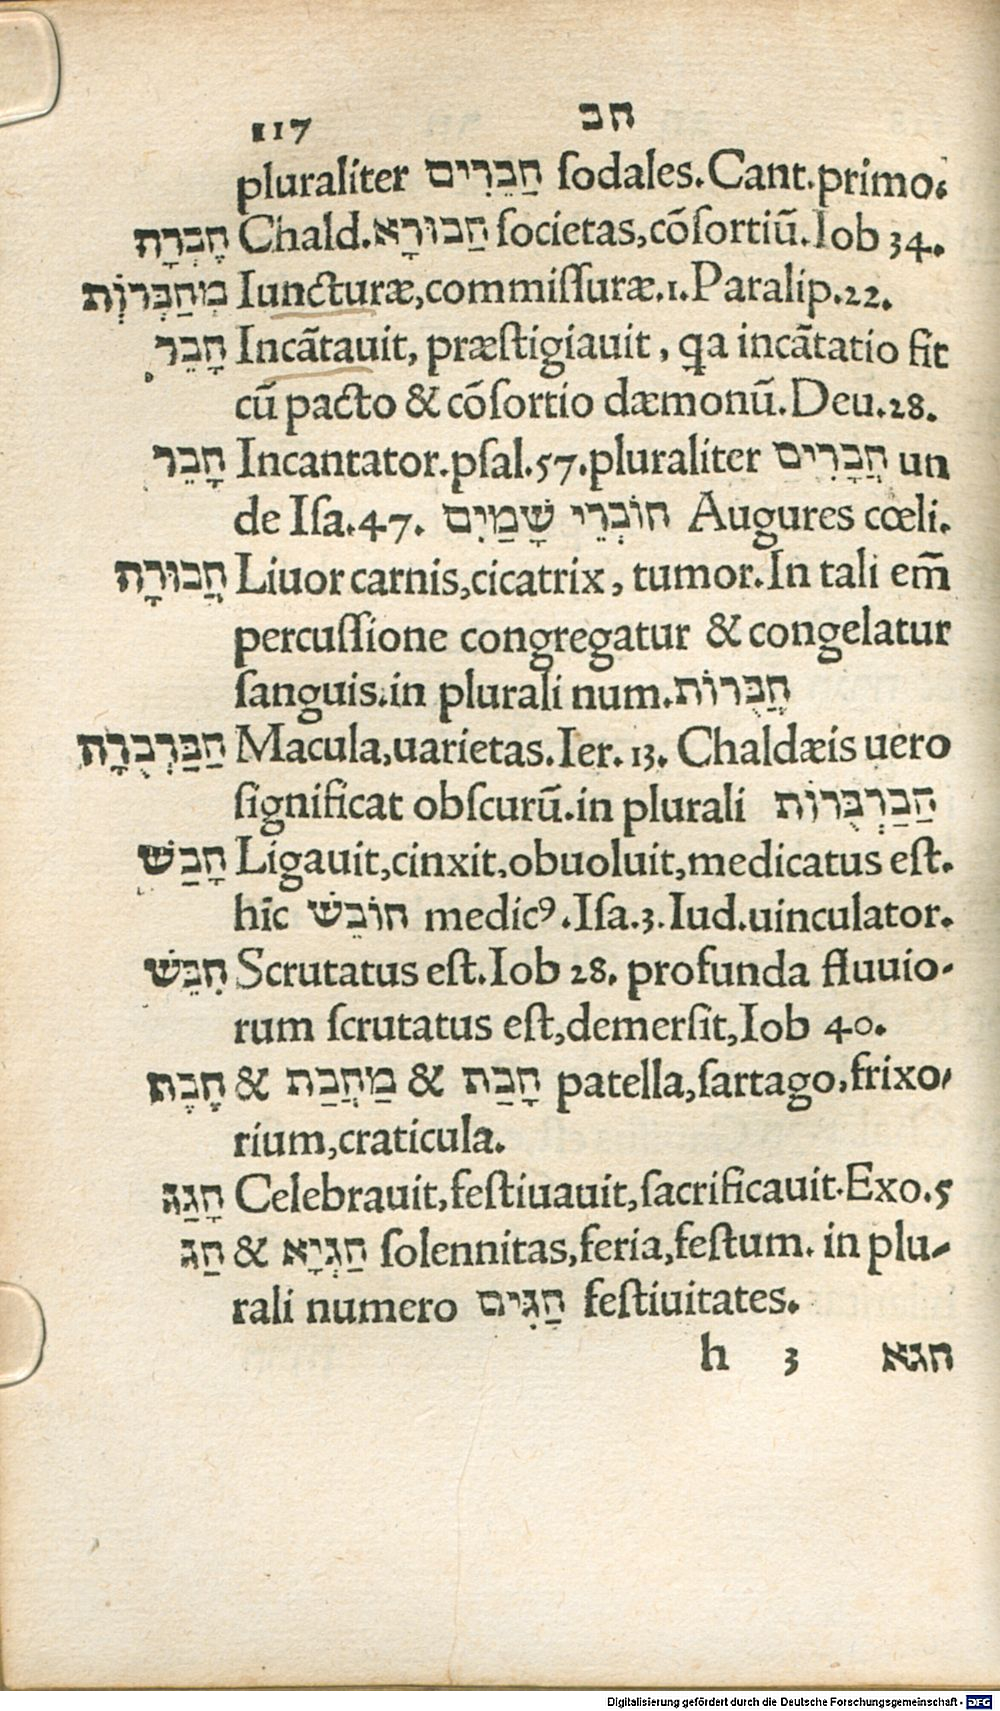 117 חב
pluraliter חַבֵרִים sodales. Cant. primo.
חֶבְרָה Chald. חַבוּרָא societas, cõsortiũ. Iob 34.
מְחַבְּרוֹת Iuncturæ, commissuræ. 1. Paralip. 22.
חָבֵר Incãtauit, præstigiauit, qa incãtatio fit
cũ pacto & cõsortio dæmonũ. Deu. 28.
חָבֵר Incantator. psal. 57. pluraliter חֲבָרִים un
de Isa. 47. חוֹבְרֵי שָׁמַיִם Augures cœli.
חֲבוּרָה Liuor carnis, cicatrix, tumor. In tali em̃
percussione congregatur & congelatur
sanguis. in plurali num. חֲבֻּרוֹת
חַבַּרְבֻרָה Macula, uarietas. Ier. 13. Chaldæis uero
significat obscurũ. in plurali חַבַרְבֻּרוֹת
חָבַשׁ Ligauit, cinxit, obuoluit, medicatus est.
hĩc חוֹבֵשׁ medicꝰ. Isa. 3. Iud. uinculator.
חִבֵּשׁ Scrutatus est. Iob 28. profunda fluuio-
rum scrutatus est, demersit, Iob 40.
חֶבֶת & מַחֲבַת & חָבַת patella, sartago, frixo-
rium, craticula.
חָגַג Celebrauit, festiuauit, sacrificauit. Exo. 5
חַג & חַגְיָא solennitas, feria, festum. in plu-
rali numero חַגִּים festiuitates.
h 3 חגא
Digitalisierung gefördert durch die Deutsche Forschungsgemeinschaft - DFG